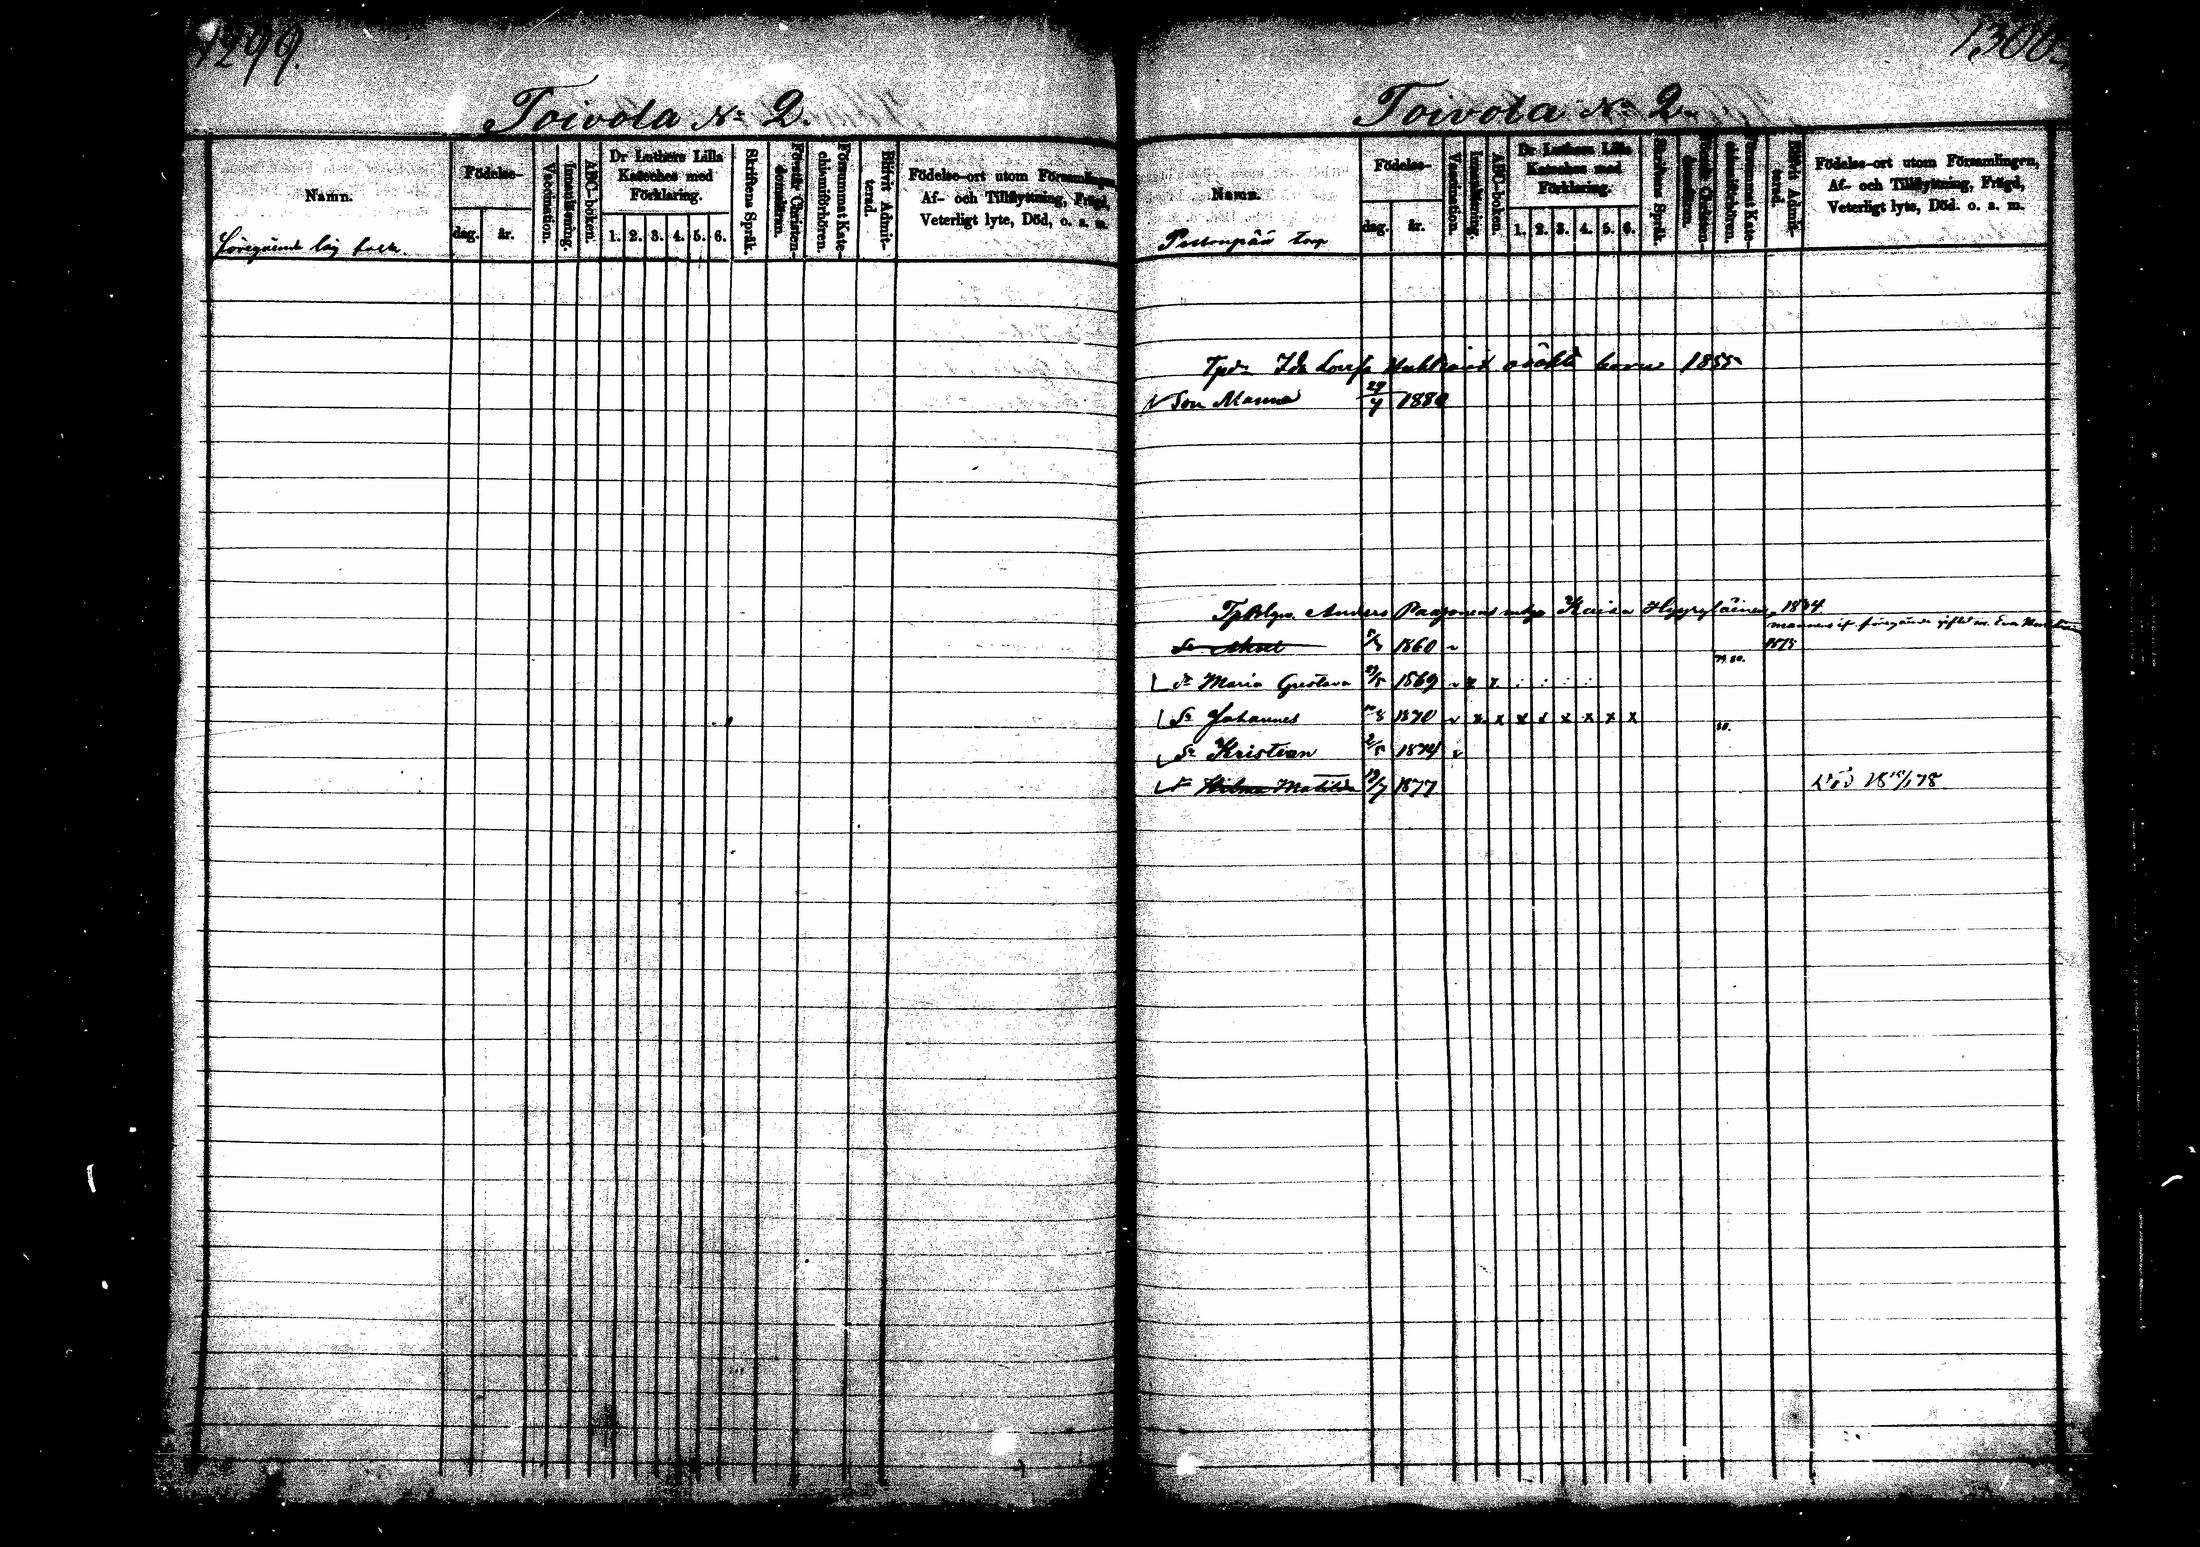 1299.
Toivola No 2.
Namn.
Födelse-
dag.
år.
Vaccination.
Innanläsning.
ABC-boken.
Dr Luthers Lilla
Kateches med
Förklaring.
1. 2. 3. 4. 5. 6.
Skriftens Språk.
Förstår Christen-
domsläran.
Försummat Kate-
chismiförhören.
Blifvit Admit-
terad.
Födelse-ort utom Församlingen,
Af- och Tillflyttning, Frägd,
Veterligt lyte, Död, o. s. m.
Föregående
1300.
Toivola No 2.
Namn.
Födelse-
dag.
år.
Vaccination.
Innanläsning.
ABC-boken.
Dr Luthers Lilla
Kateches med
Förklaring.
1. 2. 3. 4. 5. 6.
Skriftens Språk.
Förstår Christen-
domsläran.
Försummat Kate-
chismiförhören.
Blifvit Admit-
terad.
Födelse-ort utom Församlingen,
Af- och Tillflyttning, Frägd,
Veterligt lyte, Död. o. s. m.
torp
Ida oäkta barn 1855
Son Manne 29/7 1880
Anders Paajanens Kaisa Hyyryläinen 1834.
mannens föregående gifte m. Eva
1860
79. 80.
dr Maria Gustava 1869 x x
Sn Johannes 1870 v x x x x x x x x
80.
Sn Kristian 2/5 1874 v
dr Hilma Matilda 19/7 1877
Död